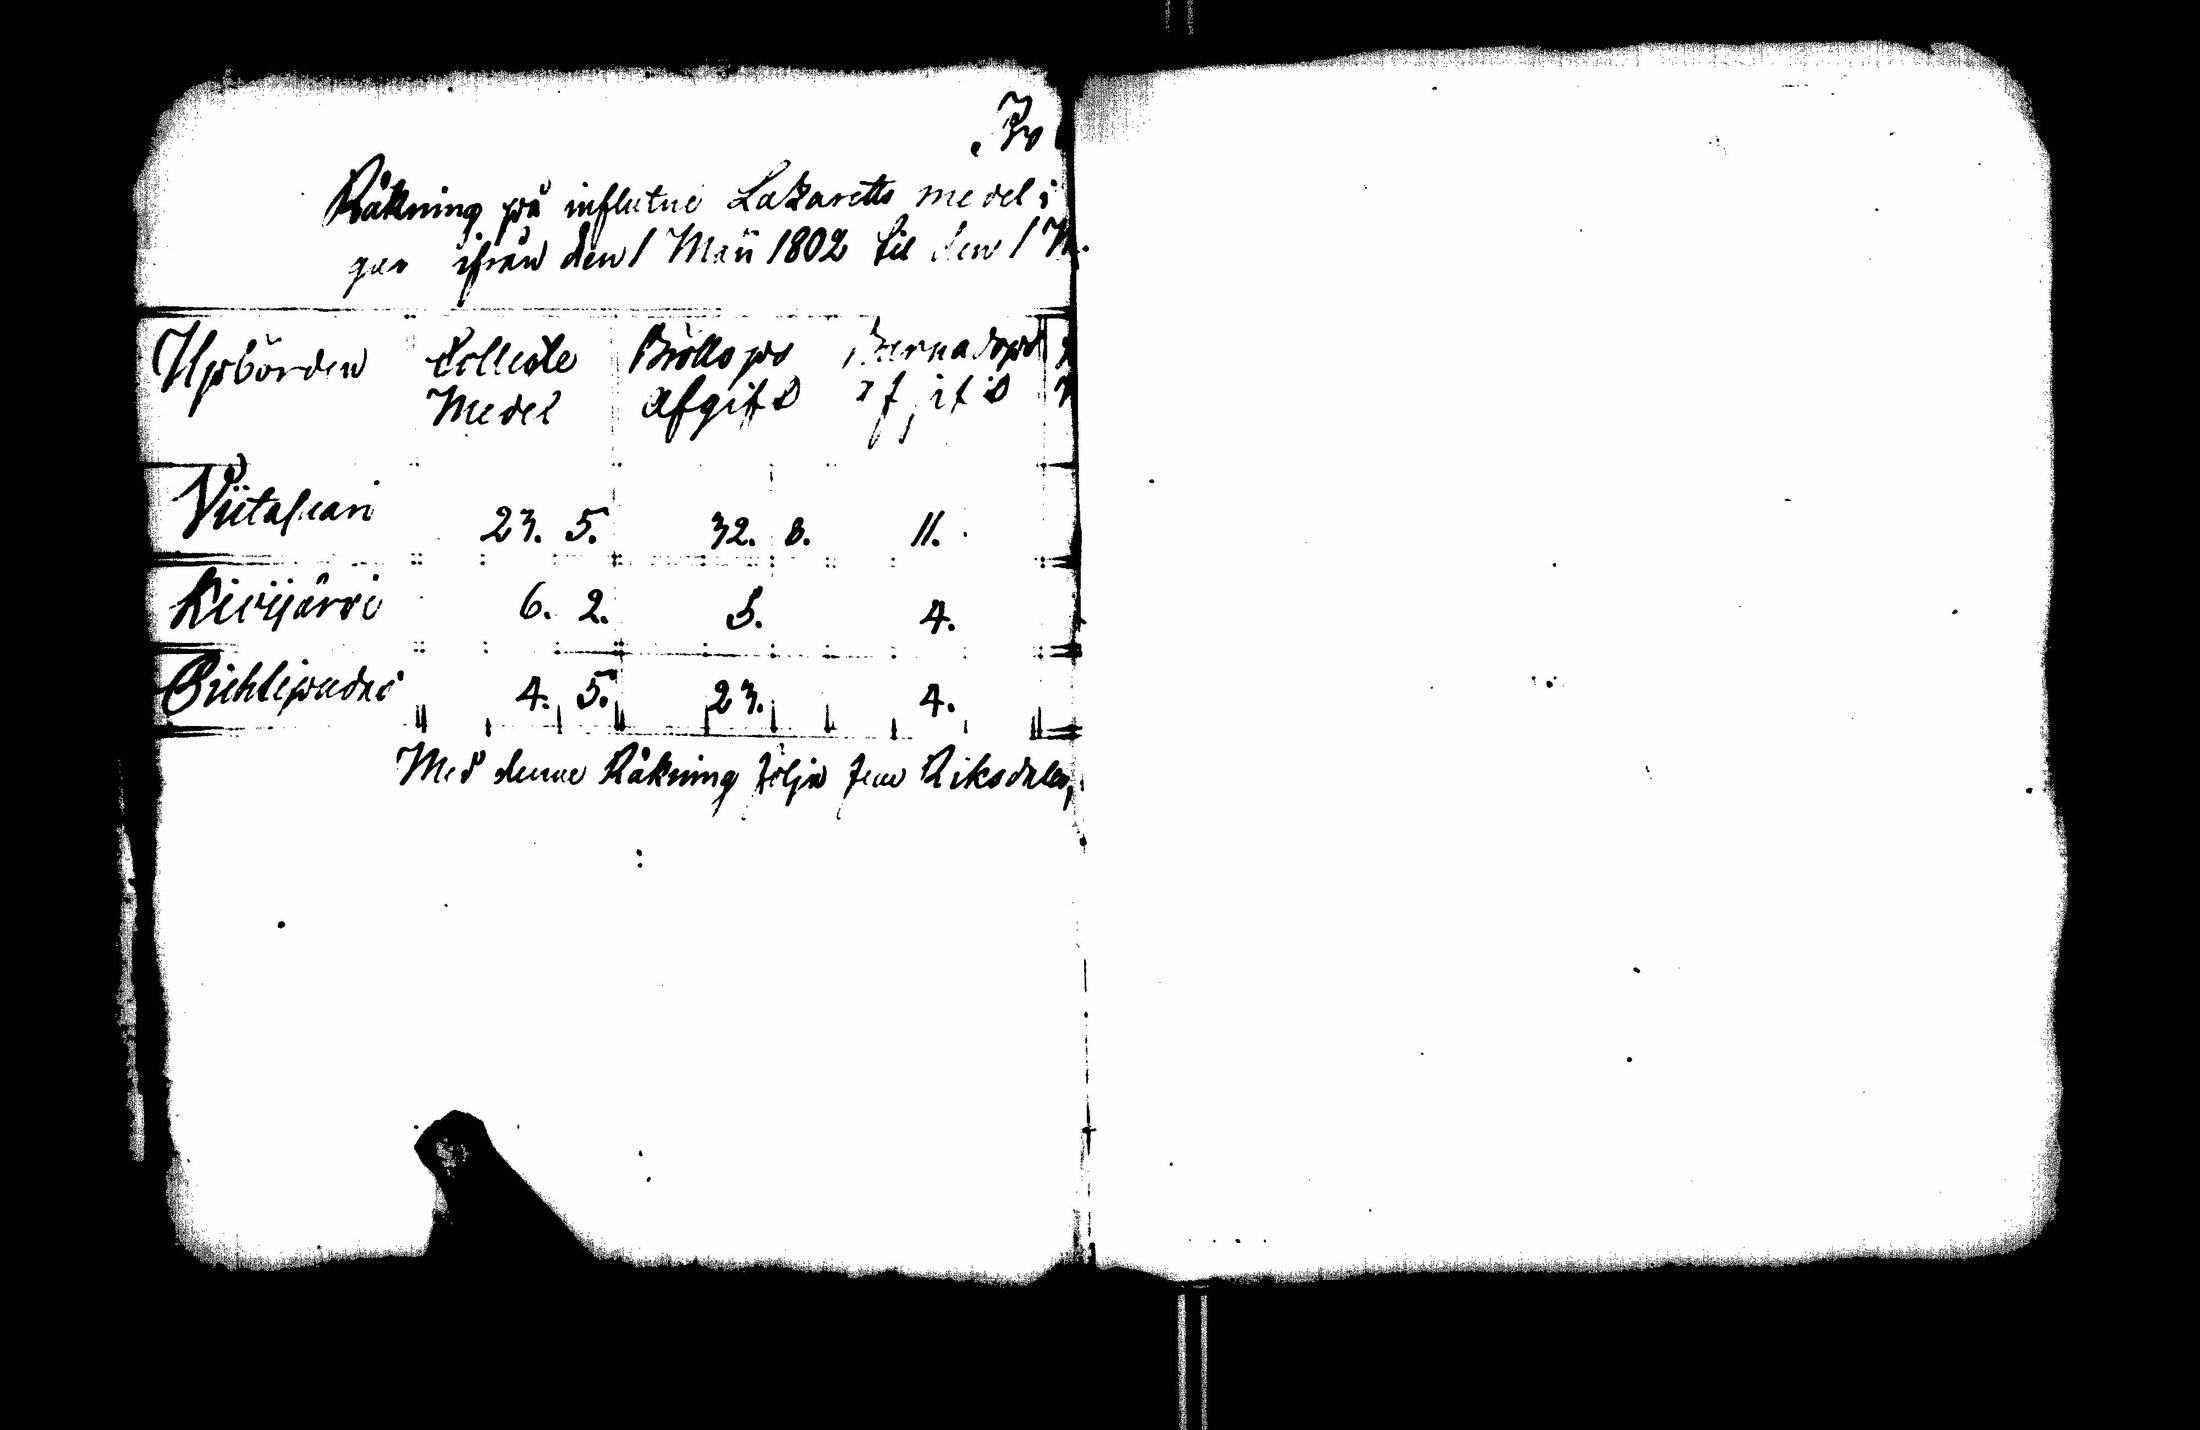 Pro
Räkning på influtne Lazaretts medel i
gar ifrån den 1 Maii 1802 til den 1 M
Upbörden Collecte Bröllops Barnadops
Medel Afgift afgift
Viitasaari 23. 5. 32. 8. 11.
Kivijärvi 6. 2. 5. 4.
Pihlipudas 4. 5. 23. 4.
Med denne Räkning följa fem Riksdaler,